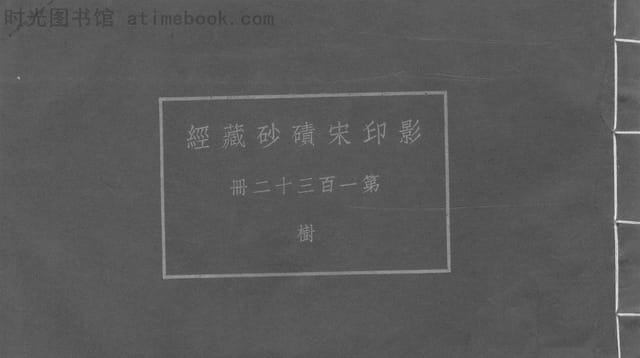 时光图书馆 atimebook.com
影印宋磧砂藏經
第一百三十二冊
樹